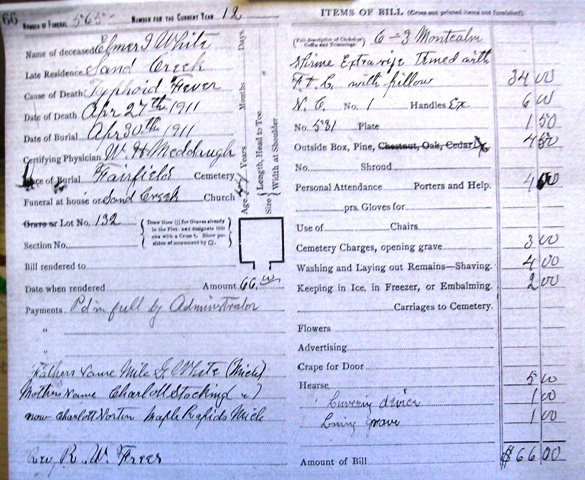 66 NUMBER OF FUNERAL 565 NUMBER FOR THE CURRENT YEAR 12
Name of deceased Elmer I White
Late Residence Sand Creek
Cause of Death Typhoid Fever
Date of Death Apr 27th 1911
Date of Burial Apr 30th 1911
Certifying Physician W. H. Meddaugh
Place of Burial Fairfield Cemetery
Funeral at house or Sand Creek Church
Grave or Lot No. 132
Section No.
Bill rendered to
Date when rendered Amount 66.00
Payments Pd in full by Administrator
"
"
Fathers Name Milo G. White (Mich)
Mothers Name Charlott Stocking ( " )
now Charlott Norton Maple Rapids Mich
Rev. R. W. Freer
Age Years Months Days
Size Length, Head to Toe.
Width at Shoulder
ITEMS OF BILL (Cross out printed items not furnished).
6-3 Montcalm
Shrine Extra size trimed with
with pillow 34 00
N. C. No. 1 Handles Ex 6 00
No. 531 Plate 1 50
Outside Box, Pine, Chestnut, Oak, Cedar
No. Shroud
Personal Attendance Porters and Help.
prs. Gloves for
Use of Chairs
Cemetery Charges, opening grave 3 00
Washing and Laying out Remains—Shaving. 4 00
Keeping in Ice, in Freezer, or Embalming. 2 00
Carriages to Cemetery.
Flowers
Advertising
Crape for Door
Hearse 5 00
driver 1 00
Lining grave 1 00
Amount of Bill $66 00